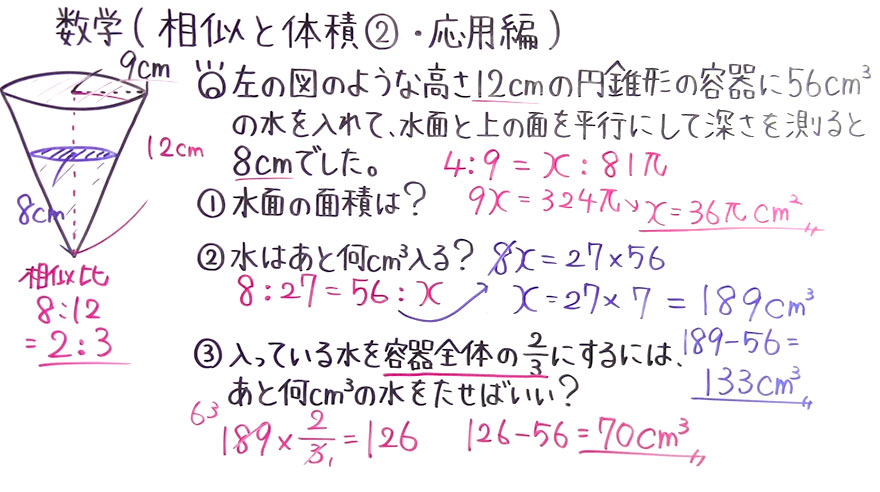 数学(相似と体積②・応用編)
9cm
12cm
8cm
相似比
8:12
=2:3
左の図のような高さ12cmの円錐形の容器に56cm³
の水を入れて、水面と上の面を平行にして深さを測ると
8cmでした。
4:9=x:81π
①水面の面積は?
9x=324π
x=36πcm²
②水はあと何cm³入る?
8x=27×56
8:27=56:x
x=27×7=189cm³
189-56=
133cm³
③入っている水を容器全体の2/3にするには、
あと何cm³の水をたせばいい?
63
189×2/3=126
1
126-56=70cm³